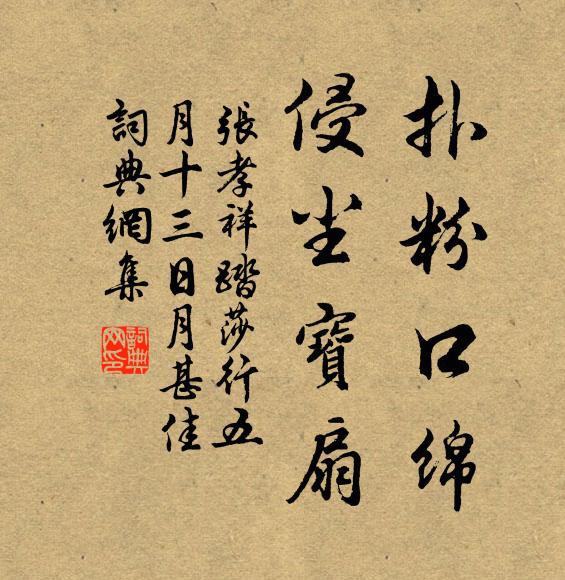 扑粉口绵
侵尘寶扇
張孝祥踏莎行五
月十三日月甚佳
詞典網集
詞典
网印